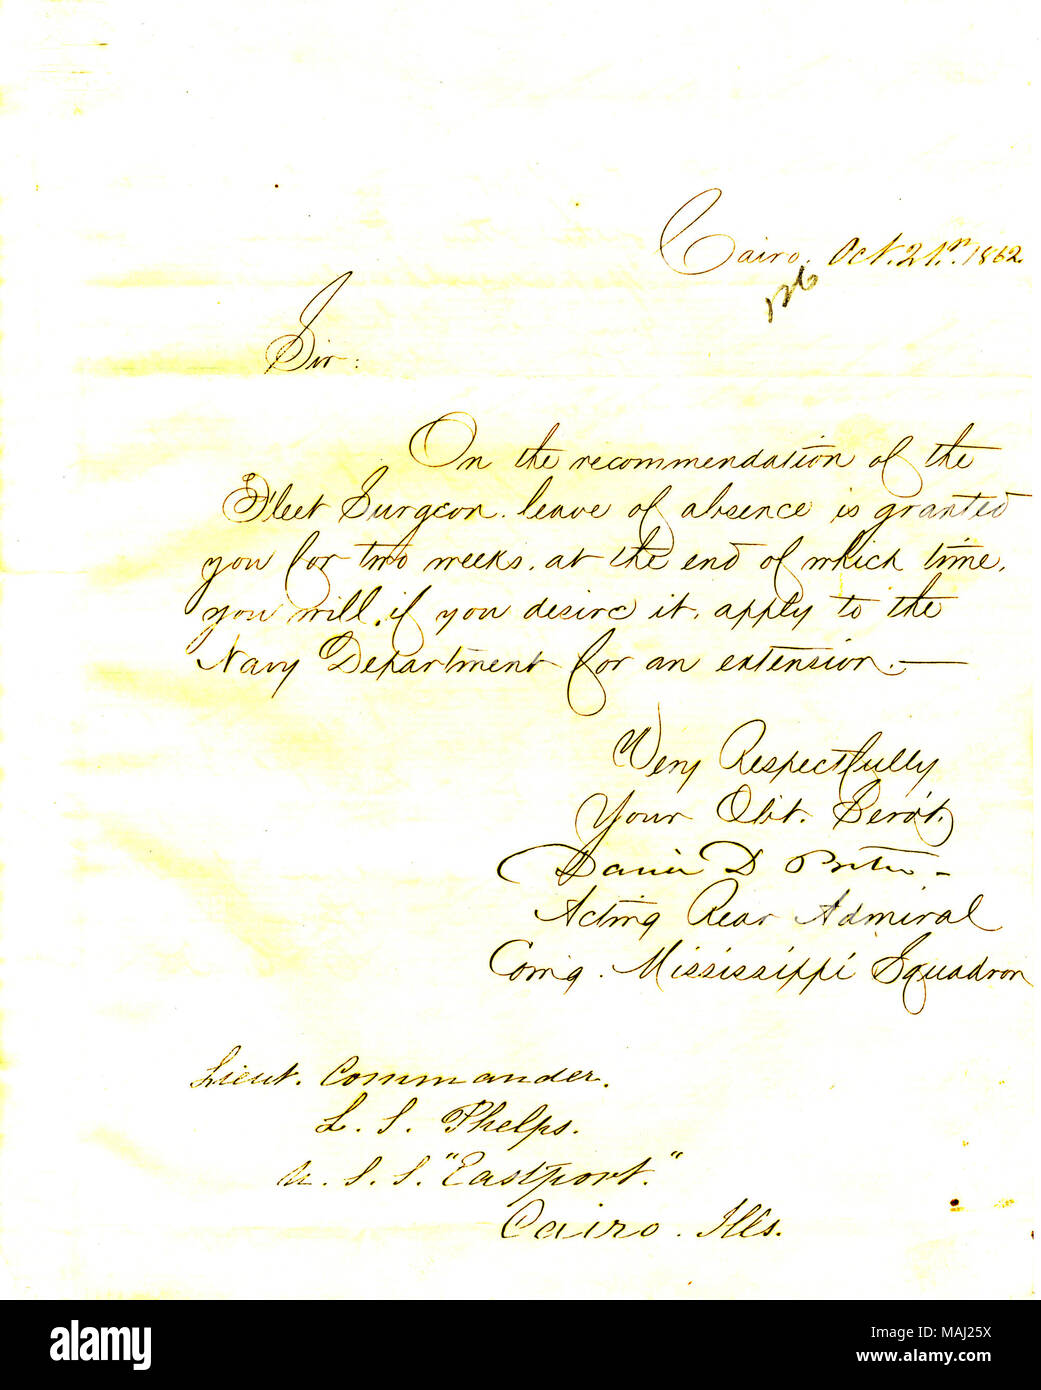 Cairo. Oct. 21st. 1862.
126
Sir:
On the recommendation of the
Fleet Surgeon. leave of absence is granted
you for two weeks. at the end of which time.
you will, if you desire it, apply to the
Navy Department for an extension.—
Very Respectfully
Your Obt. Servt.
David D Porter
Acting Rear Admiral
Comg. Mississippi Squadron
Lieut. Commander.
L. S. Phelps.
U. S. S. "Eastport."
Cairo. Ills.
a
alamy stock photo
MAJ25X
www.alamy.com